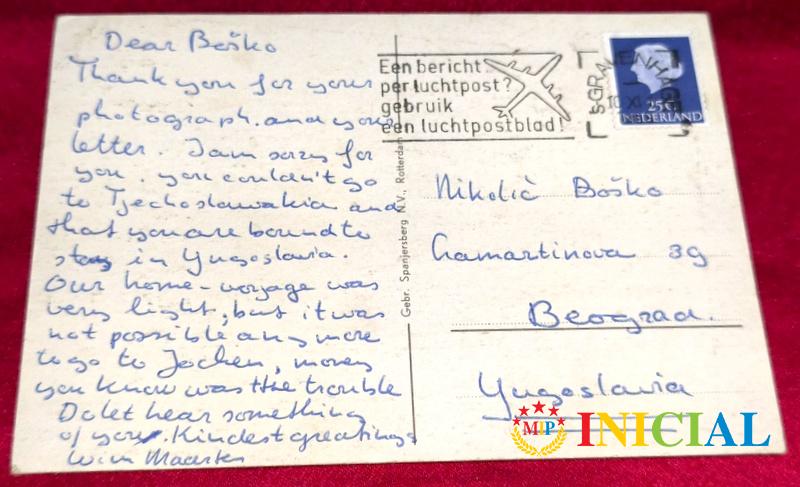 Dear Boško
Thank you for your
photograph. and your
letter. I am sorry for
you. you couldn't go
to Tjechoslowakia and
that you are bound to
stay in Yugoslavia.
Our home-voyage was
very light, but it was
not possible any more
to go to Jochen, money
you know was the trouble
Do let hear something
of you. Kindest greetings
Wim Maarten
Gebr. Spanjersberg N.V., Rotterdam
Een bericht
per luchtpost?
gebruik
een luchtpostblad!
'S-GRAVENHAGE
10 XI
25c
NEDERLAND
Nikolič Boško
Lamartinova 39
Beograd.
Yugoslavia
MIP
INICIAL